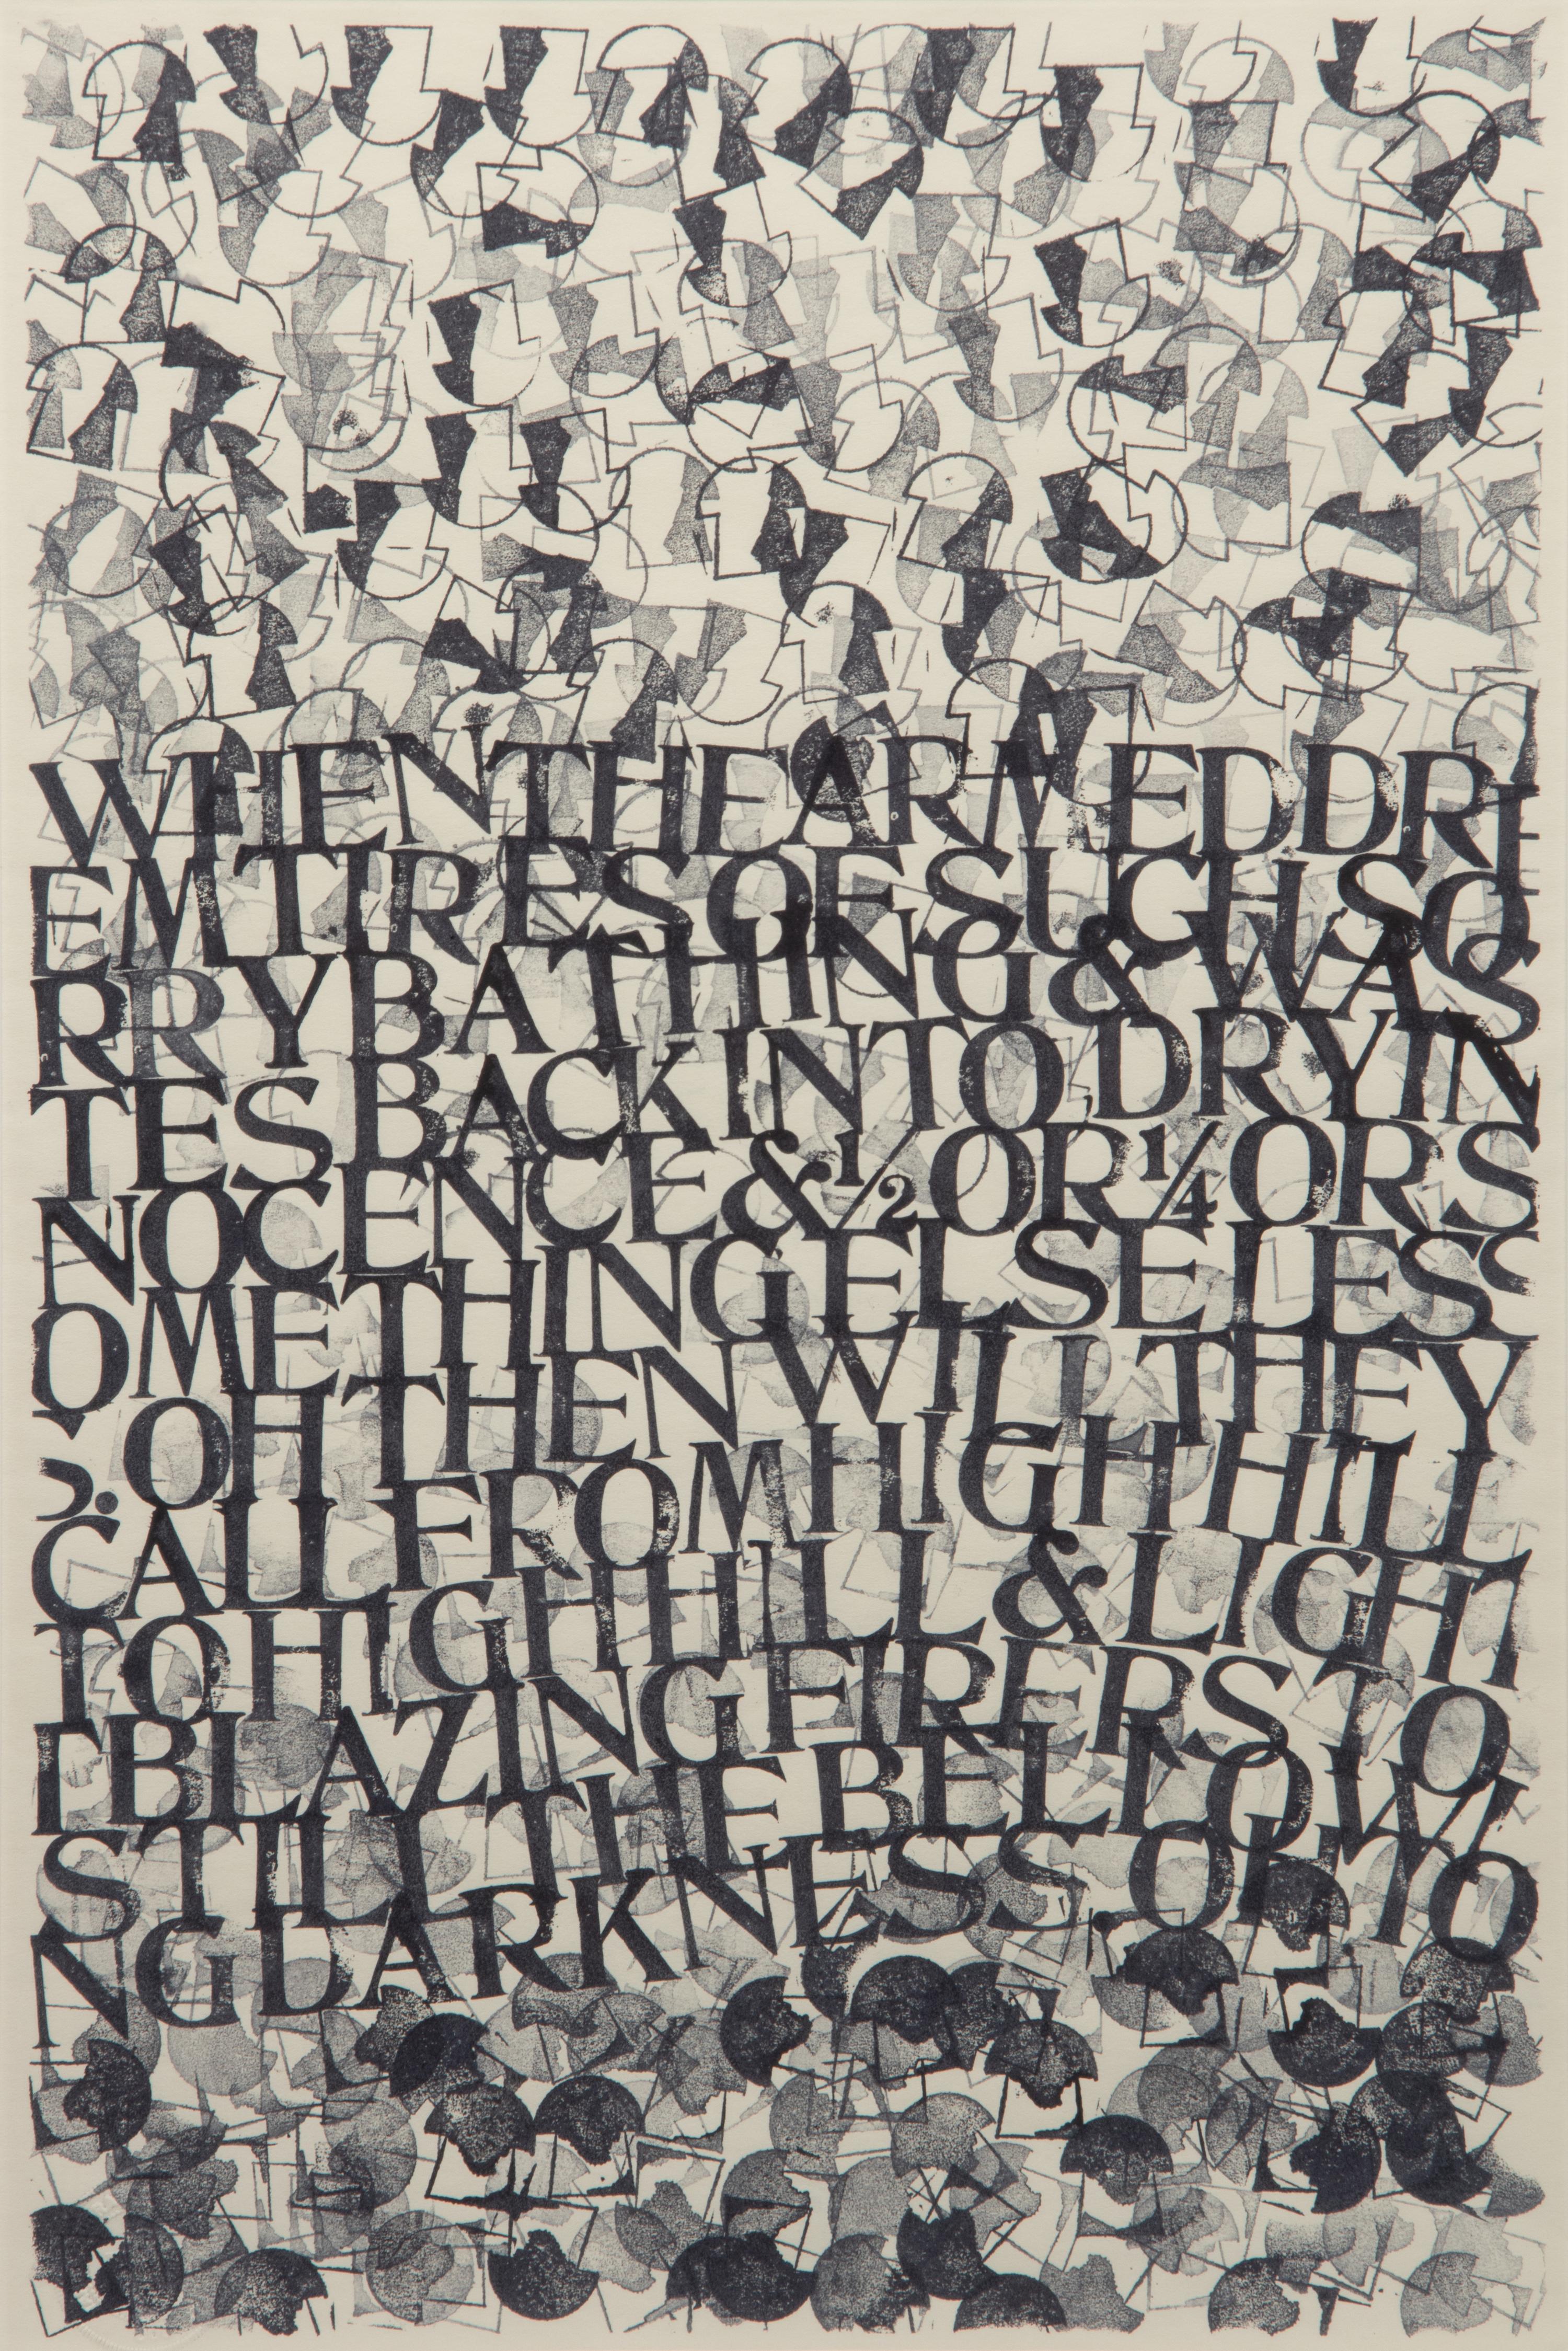 WHEN THE ARMED DRE
EM TIRES OF SUCH SO
RRY BATHING & WAS
TES BACK INTO DRY IN
NOCENCE & ½ OR ¼ OR S
OMETHING ELSE LESS
? OH THEN WILL THEY
CALL FROM HIGH HILL
TO HIGH HILL & LIGH
T BLAZING FIRERS TO
STILL THE BELLOWI
NG DARKNESS OH TO